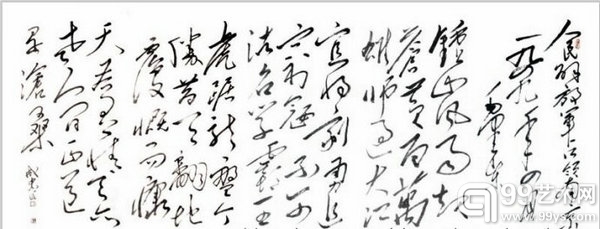 人民解放军占领南京
一九四九年四月
毛泽东
鍾山风雨起
蒼黄百萬
雄师过大江
宜将剩勇追
穷寇不可
沽名学霸王
虎踞龙盘今
胜昔天翻地
覆慨而慷
天若有情天亦
老人间正道
是滄桑
99艺术网
www.99ys.com